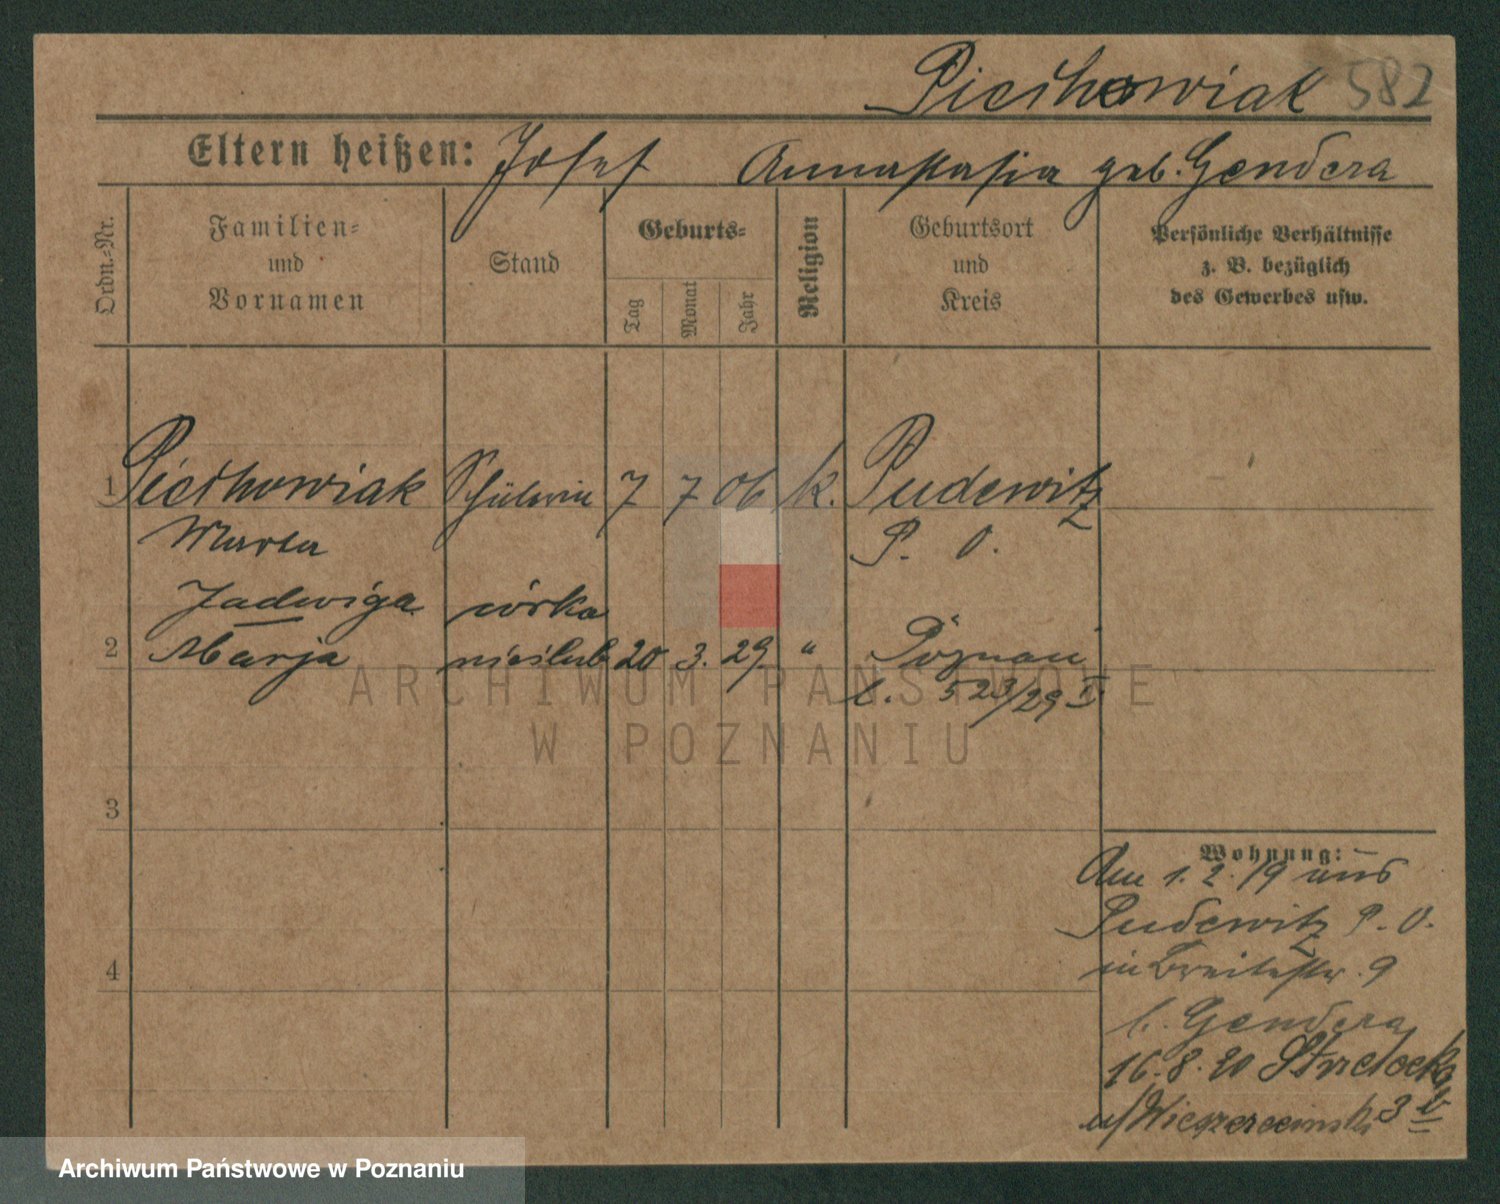 Piechowiak 582
Eltern heißen: Josef Annastasia geb. Gendera
Ordn.-Nr.
Familien-
und
Vornamen
Stand
Geburts-
Tag
Monat
Jahr
Religion
Geburtsort
und
Kreis
Persönliche Verhältnisse
z. B. bezüglich
des Gewerbes usw.
1 Piechowiak Schülerin 7 7 06 k. Pudewitz
Marta P. O.
Jadwiga córka
2 Marja nieślub 20 3. 29 " Poznań
l. 523/29 II
3
Wohnung:
Am 1. 2. 19 aus
Pudewitz P. O.
4 in Breitestr. 9
b. Gendera
16. 8. 20 Strzelecka
3 b
ARCHIWUM PAŃSTWOWE
W POZNANIU
Archiwum Państwowe w Poznaniu